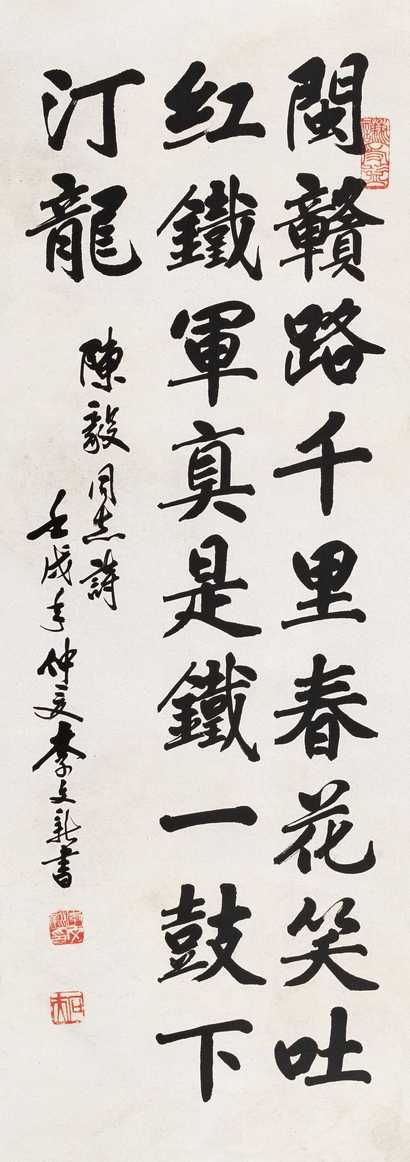 閩贛路千里春花笑吐
紅鐵軍真是鐵一鼓下
汀龍
陳毅同志詩
壬戌年仲夏李文新書